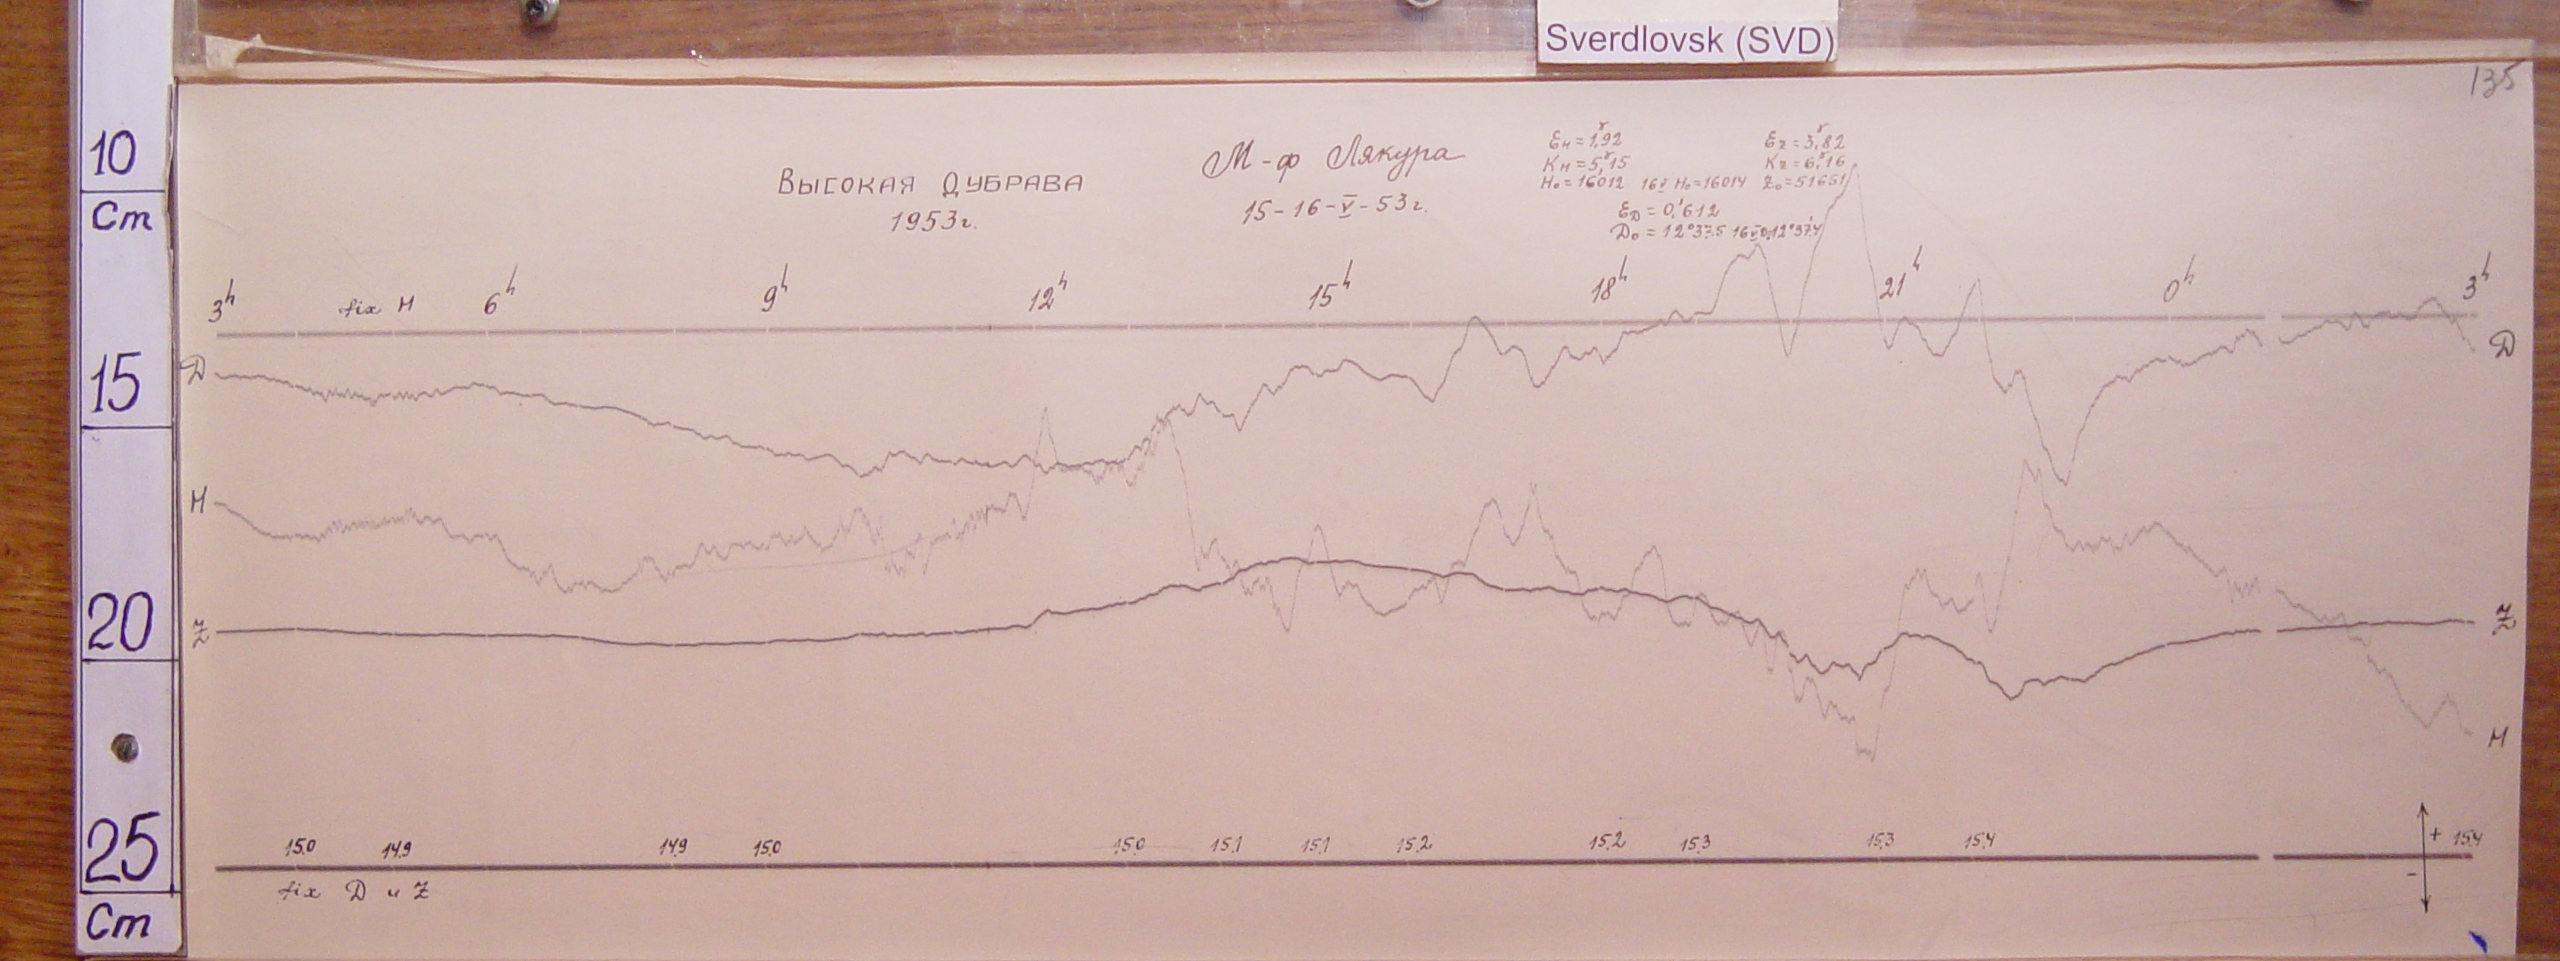 Sverdlovsk (SVD)
135
10
Cm
15
20
25
Cm
Высокая Дубрава
1953г.
М-ф Лякура
15-16-V-53г.
EH = 1,92γ
KH = 5,15γ
H₀ = 16012 16V H₀ = 16014
EZ = 3,82γ
KZ = 6,16γ
Z₀ = 51651
ED = 0,'612
D₀ = 12°37.5 16V D₀ 12°37.'4
3h fix H 6h 9h 12h 15h 18h 21h 0h 3h
D D
H
Z Z
H
15.0 14.9 14.9 15.0 15.0 15.1 15.1 15.2 15.2 15.3 15.3 15.4 + 15.4
-
fix D и Z